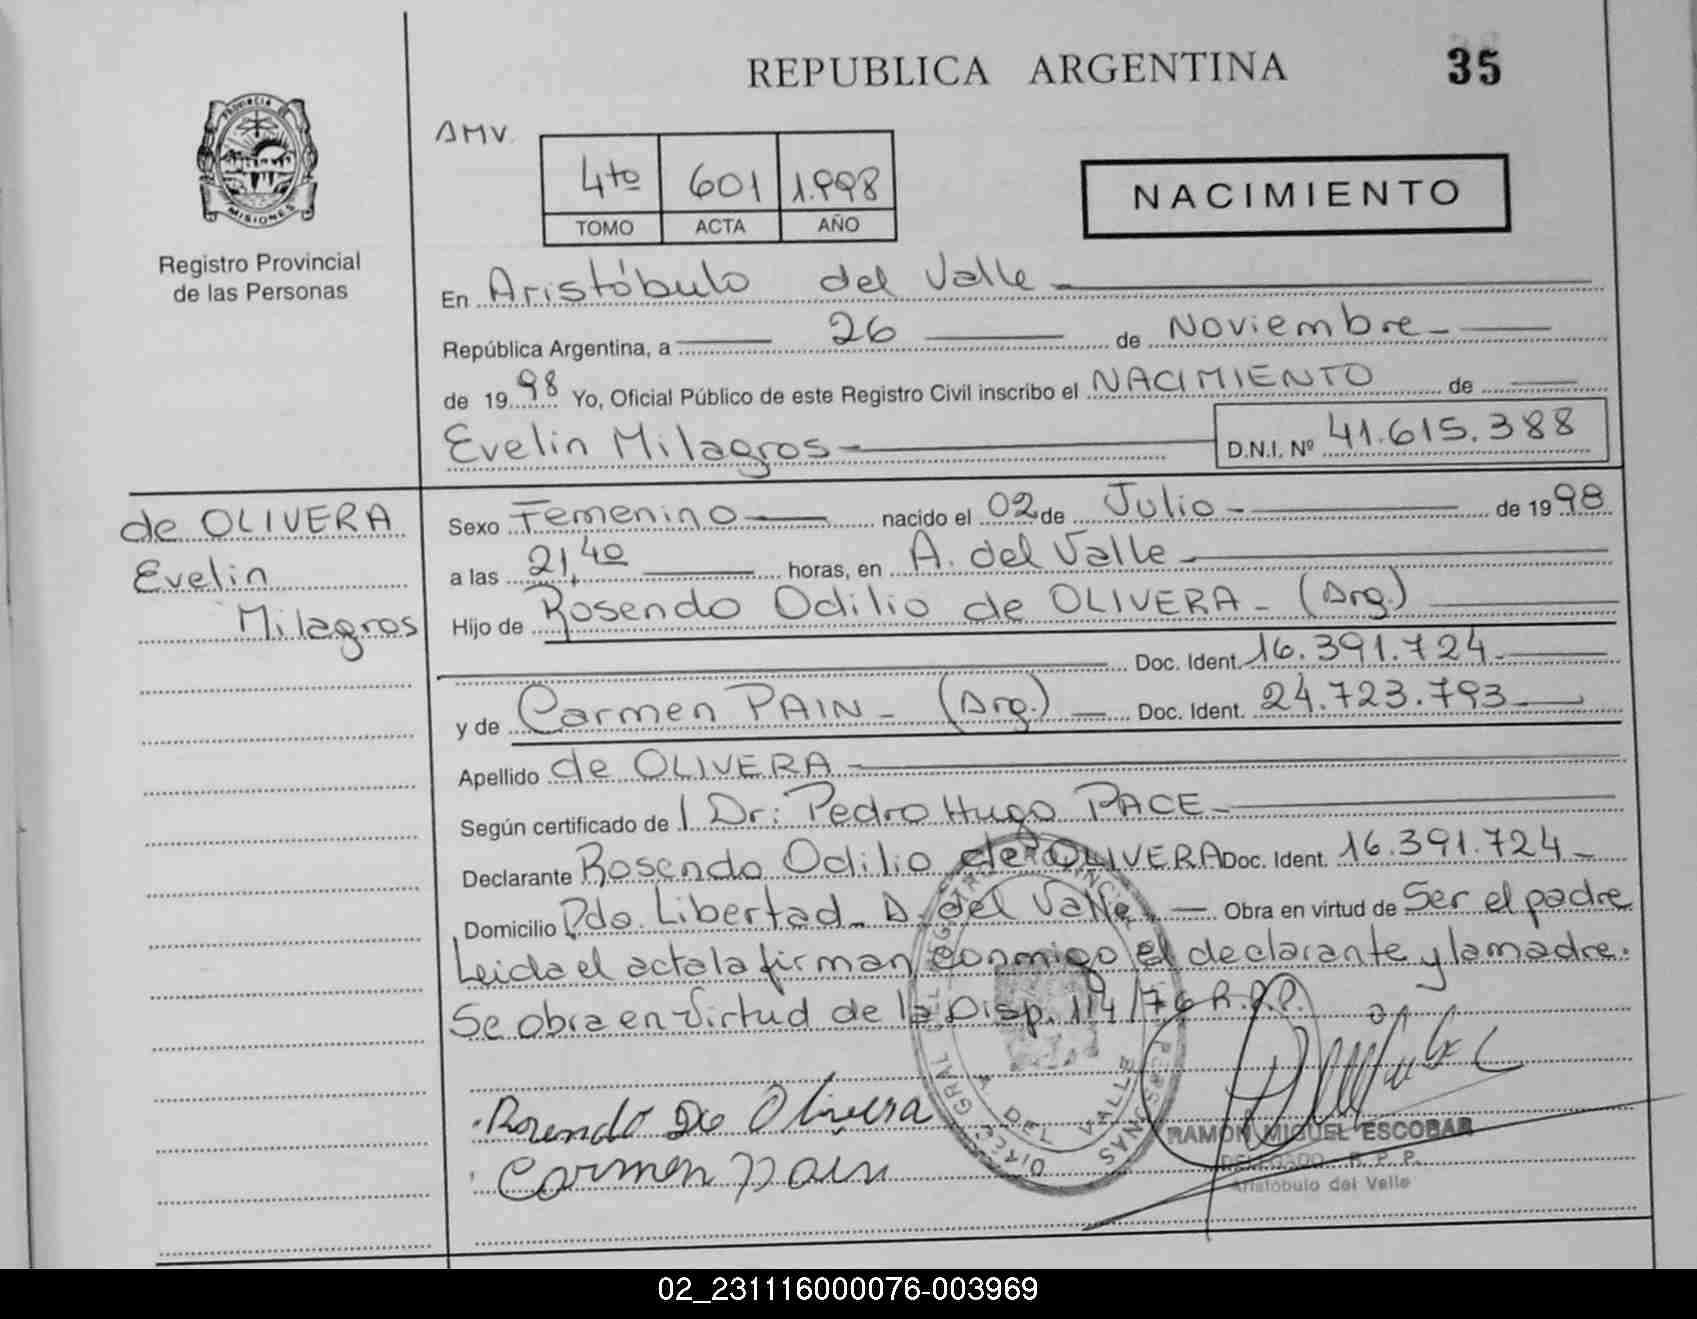 REPUBLICA ARGENTINA
35
PROVINCIA DE
MISIONES
Registro Provincial
de las Personas
AMV.
4to 601 1.998
TOMO ACTA AÑO
NACIMIENTO
En Aristóbulo del Valle
República Argentina, a 26 de Noviembre
de 1998 Yo, Oficial Público de este Registro Civil inscribo el NACIMIENTO de
Evelin Milagros D.N.I. Nº 41.615.388
de OLIVERA
Evelin
Milagros
Sexo Femenino nacido el 02 de Julio de 1998
a las 21,40 horas, en A. del Valle
Hijo de Rosendo Odilio de OLIVERA - (Arg.)
Doc. Ident. 16.391.724
y de Carmen PAIN - (Arg.) Doc. Ident. 24.723.793
Apellido de OLIVERA
Según certificado de l Dr: Pedro Hugo PACE
Declarante Rosendo Odilio de OLIVERA Doc. Ident. 16.391.724
Domicilio Pdo. Libertad - A. del Valle Obra en virtud de Ser el padre
Leida el acta la firman conmigo el declarante y la madre.
Se obra en virtud de la Disp. 114/76 R.P.P.
Rosendo De Olivera
Carmen Pain
RAMON MIGUEL ESCOBAR
DELEGADO R. P. P.
Aristobulo del Valle
02_231116000076-003969